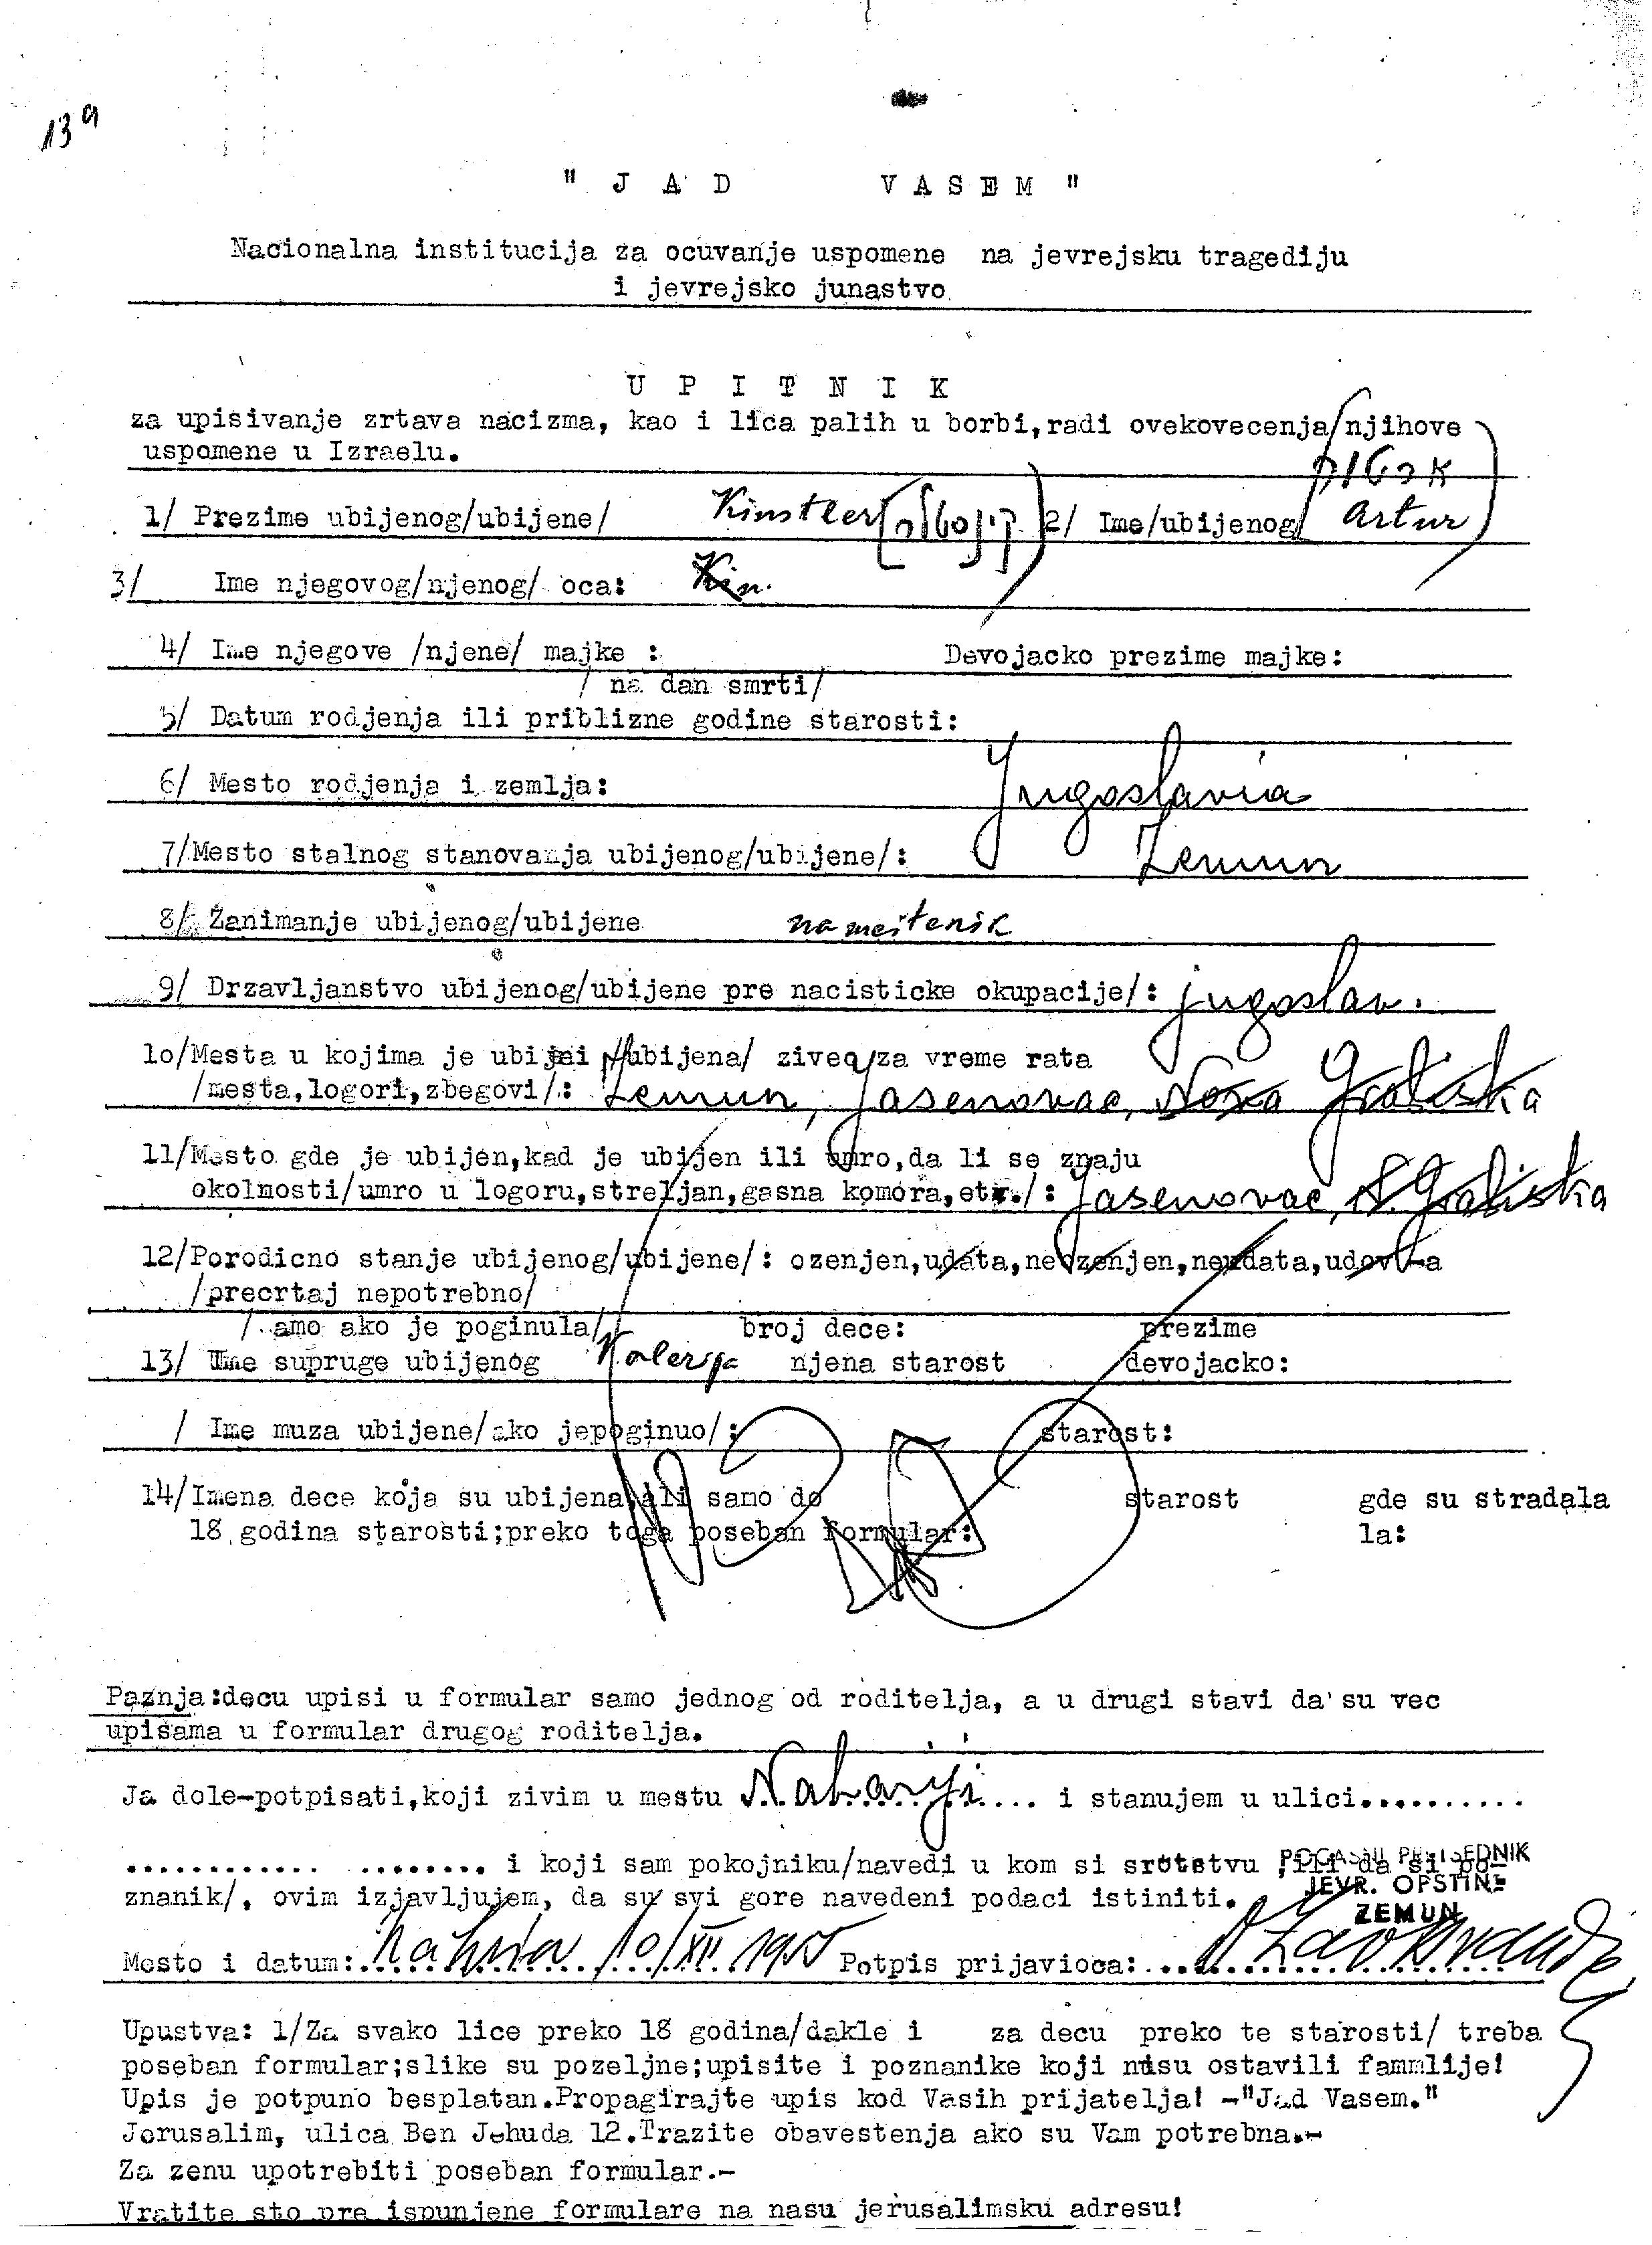 13a
" J A D   V A S E M "
Nacionalna institucija za ocuvanje uspomene na jevrejsku tragediju
i jevrejsko junastvo
U P I T N I K
za upisivanje zrtava nacizma, kao i lica palih u borbi,radi ovekovecenja/njihove
uspomene u Izraelu.
1/ Prezime ubijenog/ubijene/ Kinstler 2/ Ime/ubijenog/ Artur
3/ Ime njegovog/njenog/ oca: Kin.
4/ Ime njegove /njene/ majke : Devojacko prezime majke:
/ na dan smrti/
5/ Datum rodjenja ili priblizne godine starosti:
6/ Mesto rodjenja i zemlja: Jugoslavia
7/Mesto stalnog stanovanja ubijenog/ubijene/: Zemun
8/ Zanimanje ubijenog/ubijene nameštenik
9/ Drzavljanstvo ubijenog/ubijene pre nacisticke okupacije/: jugoslav.
lo/Mesta u kojima je ubijen /ubijena/ziveo/za vreme rata
/mesta,logori,zbegovi/: Zemun, Jasenovac, Nova Gradiska
11/Mesto gde je ubijen,kad je ubijen ili umro,da li se znaju
okolnosti/umro u logoru,streljan,gasna komora,etc./: Jasenovac, N. Gradiska
12/Porodicno stanje ubijenog/ubijene/: ozenjen,udata,neozenjen,neudata,udov-a
/precrtaj nepotrebno/
/.amo ako je poginula/ broj dece: prezime
13/ Ime supruge ubijenog njena starost devojacko:
/ Ime muza ubijene/ako jepoginuo/: starost:
14/Imena dece koja su ubijena,ali samo do starost gde su stradala
18 godina starosti;preko toga poseban formular: la:
Paznja:decu upisi u formular samo jednog od roditelja, a u drugi stavi da su vec
upisama u formular drugog roditelja.
Ja dole-potpisati,koji zivim u mestu Nahariji.... i stanujem u ulici..........
............ ........ i koji sam pokojniku/navedi u kom si srotstvu ,ili da si po-
PREDSEDNIK
znanik/, ovim izjavljujem, da su svi gore navedeni podaci istiniti.
JEVR. OPSTINE
ZEMUN
Mesto i datum: 10/XII 1955 Potpis prijavioca:
Upustva: 1/Za svako lice preko 18 godina/dakle i za decu preko te starosti/ treba
poseban formular;slike su pozeljne;upisite i poznanike koji nisu ostavili fammlije!
Upis je potpuno besplatan.Propagirajte upis kod Vasih prijatelja! -"Jad Vasem."
Jerusalim, ulica Ben Jehuda 12.Trazite obavestenja ako su Vam potrebna.-
Za zenu upotrebiti poseban formular.-
Vratite sto pre ispunjene formulare na nasu jerusalimsku adresu!